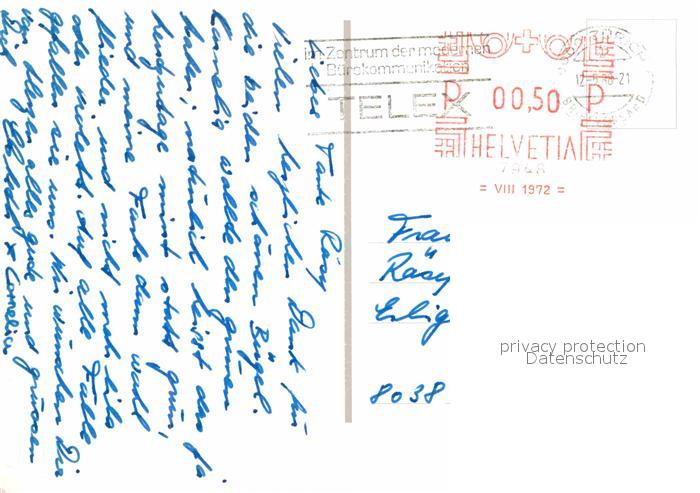 Liebe Tante Räsy
vielen herzlichen Dank für
die beiden schönen Bügel.
Cornelia wollte den grünen
haben, natürlich heisst das ja
heutzutage nicht statt grün,
und meine Farbe dann wohl
flieder und nicht mehr lila
oder violett. Auf alle Fälle
gefallen sie uns. Wir wünschen Dir
alles gute und grüssen
Elisabeth + Cornelia
im Zentrum der modernen
Bürokommunikation
TELEX
ZÜRICH
-21
P 00,50 P
HELVETIA
7848
= VIII 1972 =
Frau
Räsy
Erbig
8038
privacy protection
Datenschutz